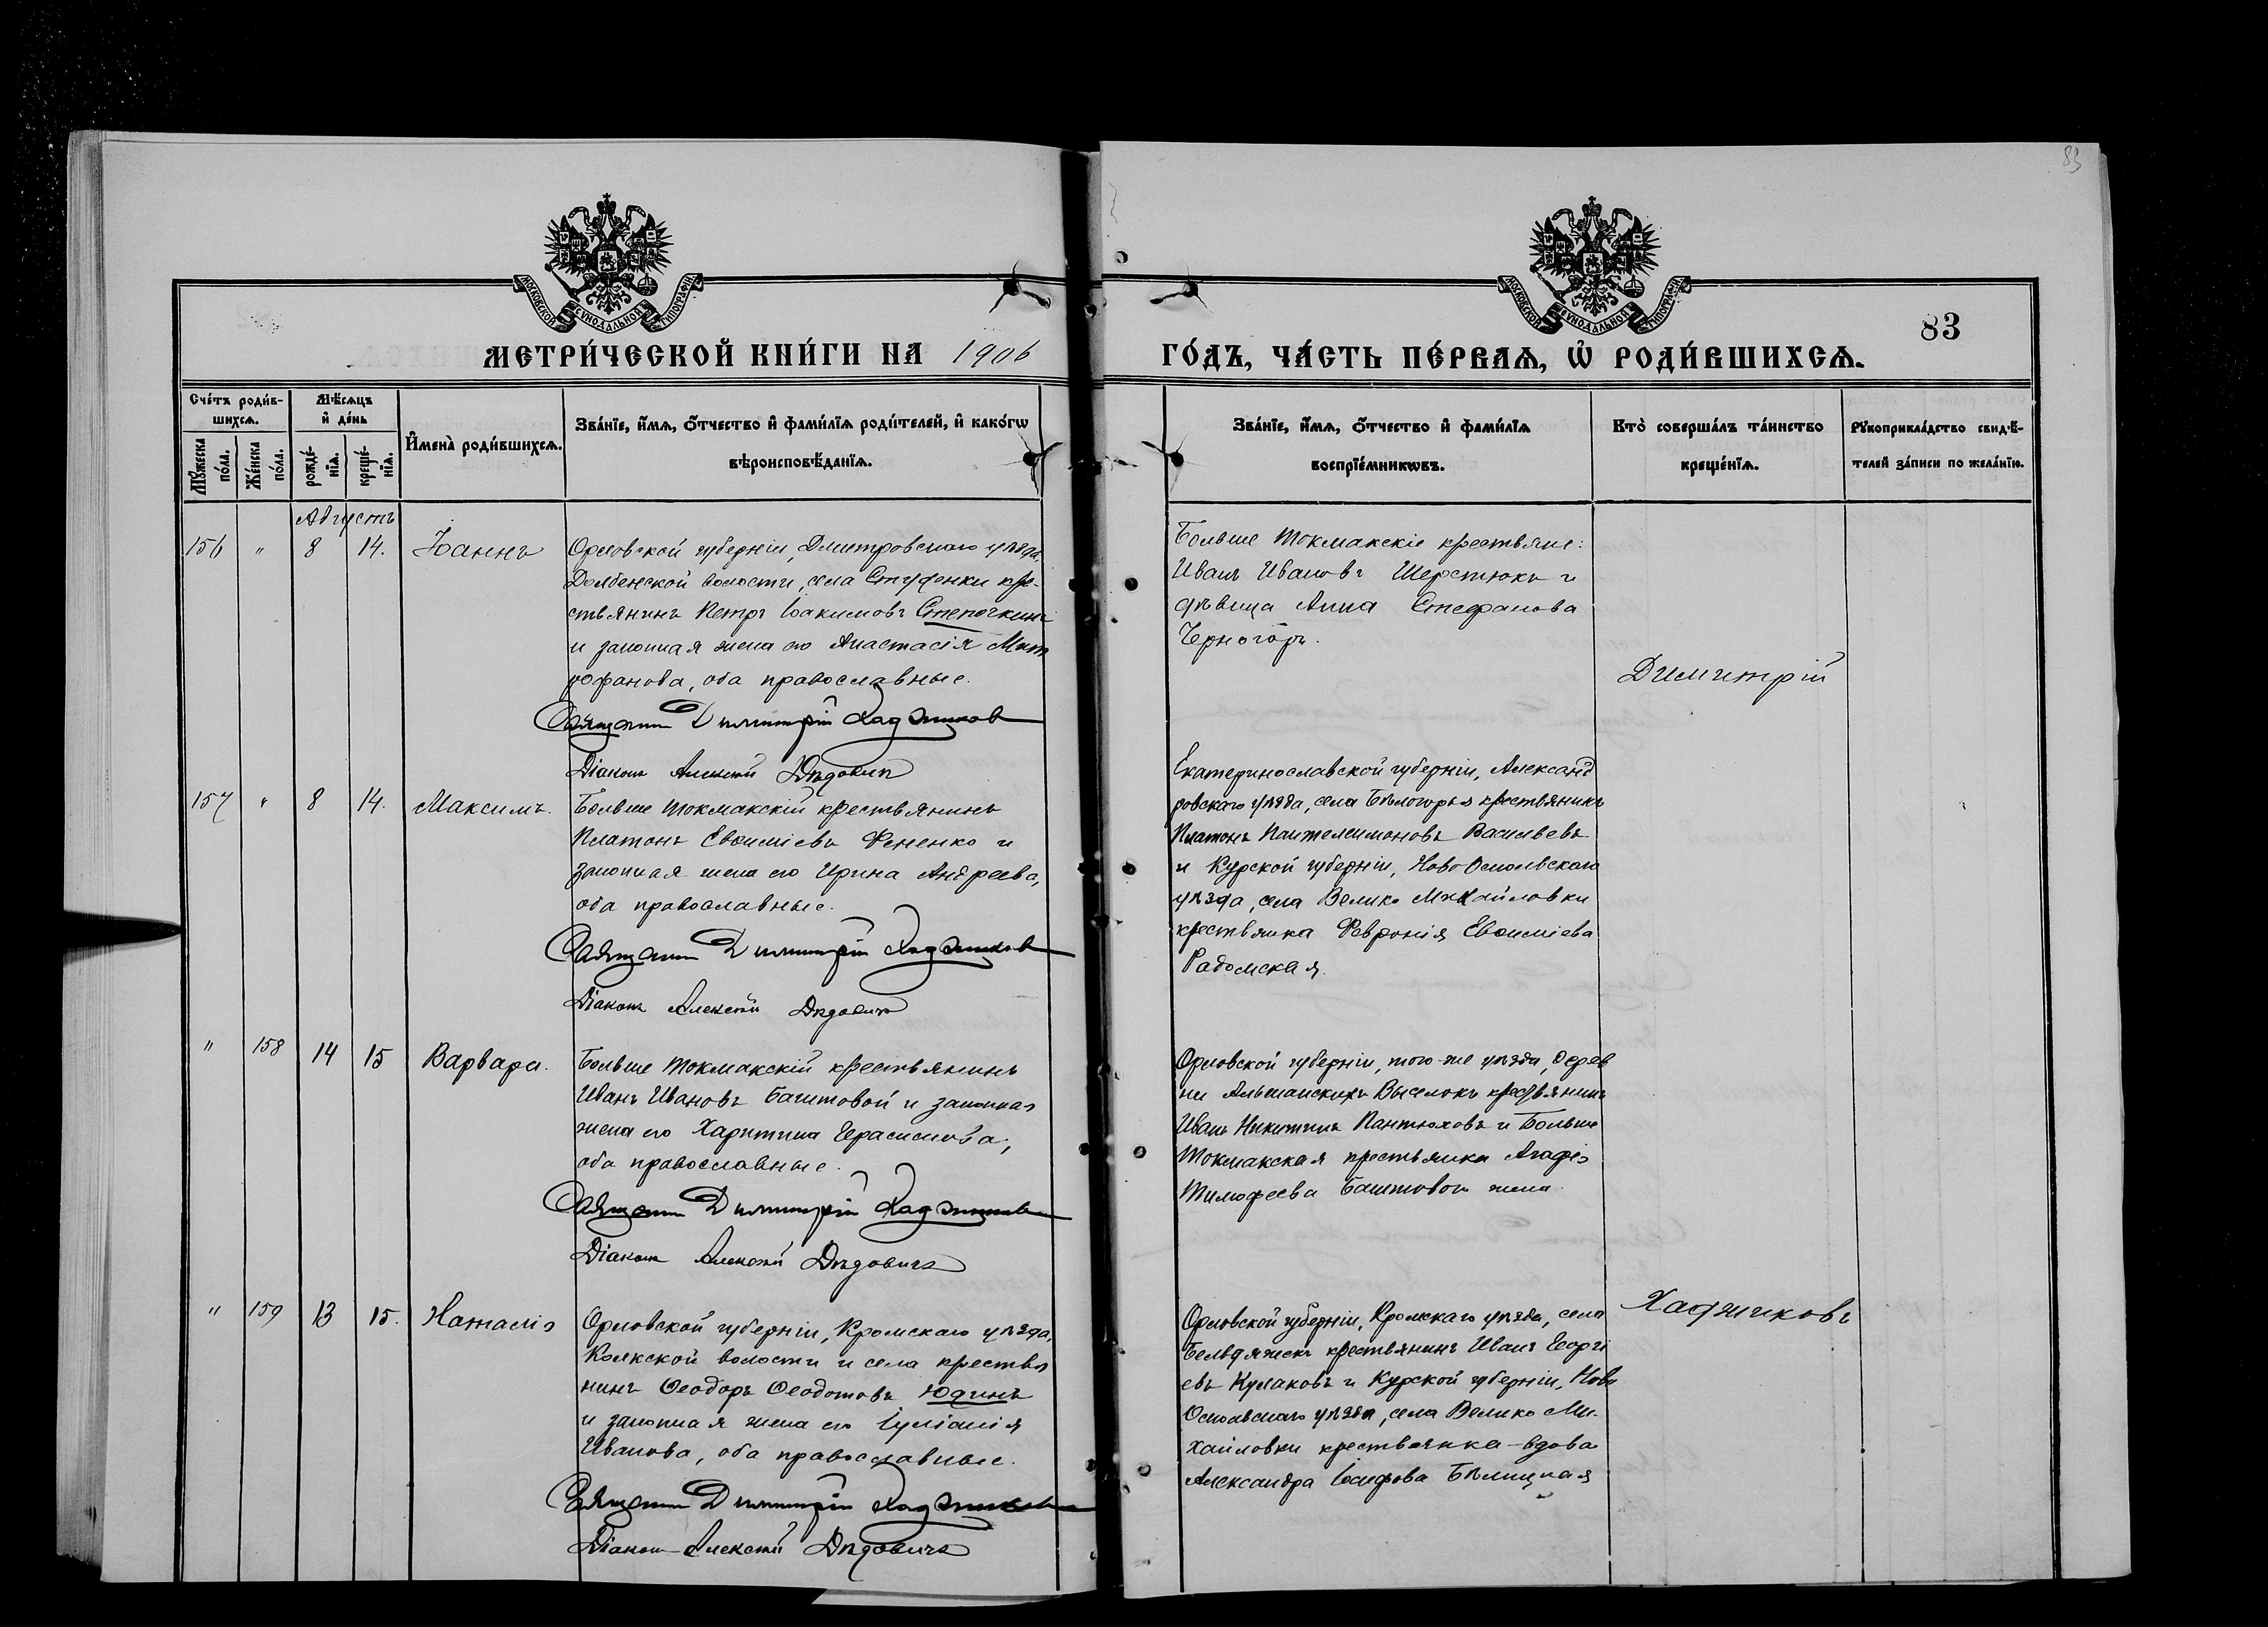 83
МОСКОВСКОЙ СѴНОДАЛЬНОЙ ТИПОГРАФІИ
МОСКОВСКОЙ СѴНОДАЛЬНОЙ ТИПОГРАФІИ
83
МЕТРИ́ЧЕСКОЙ КНИ́ГИ НА 1906
ГО́ДЪ, ЧА́СТЬ ПЕ́РВАѦ, Ѡ҆ РОДИ́ВШИХСѦ.
Сче́тъ роди́в-
шихсѧ.
Мѣ́сѧцъ
и҆ де́нь
Мꙋ́жеска
по́ла.
Же́нска
по́ла.
рожде́-
нїѧ.
креще́-
нїѧ.
И҆мена̀ роди́вшихсѧ.
Зва́нїе, и҆́мѧ, ѻ҆́тчество и҆ фами́лїѧ роди́телей, и҆ како́гѡ
вѣроисповѣ́данїѧ.
Зва́нїе, и҆́мѧ, ѻ҆́тчество и҆ фами́лїѧ
воспрїе́мникѡвъ.
Кто̀ соверша́лъ та́инство
креще́нїѧ.
Рꙋкоприкла́дство свидѣ́-
телей за́писи по жела́нїю.
Августъ
156 " 8 14. Іоаннъ
Орловской губерніи, Дмитровскаго уѣзда,
Долбенской волости, села Студенки кре-
стьянинъ Петръ Іоакимовъ Степочкинъ
и законная жена его Анастасія Мит
рофанова, оба православные.
Священникъ Димитрій Хаджиковъ
Діаконъ Алексій Дѣдовичъ
Больше Токмакскіе крестьяне:
Иванъ Ивановъ Шерстюкъ и
дѣвица Анна Стефанова
Черногоръ.
Димитрій
157 " 8 14. Максимъ.
Больше Токмакскій крестьянинъ
Платонъ Евѳиміевъ Фененко и
законная жена его Ирина Андреева,
оба православные.
Священникъ Димитрій Хаджиковъ
Діаконъ Алексій Дѣдовичъ
Екатеринославской губерніи, Александ
ровскаго уѣзда, села Бѣлогорья крестьянинъ
Платонъ Пантелеимоновъ Васильевъ
и Курской губерніи, Ново Оскольскаго
уѣзда, села Велико Михайловки
крестьянка Февронія Евѳиміева
Радомская.
" 158 14 15 Варвара.
Больше Токмакскій крестьянинъ
Иванъ Ивановъ Баштовой и законная
жена его Харитина Герасимова,
оба православные.
Священникъ Димитрій Хаджиковъ
Діаконъ Алексій Дѣдовичъ
Орловской губерніи, того-же уѣзда, дерев
ни Альшанскихъ Выселокъ крестьянинъ
Иванъ Никитинъ Пантюховъ и Больше
Токмакская крестьянка Агафія
Тимофеева Баштовой жена.
" 159 13 15. Наталія
Орловской губерніи, Кромскаго уѣзда,
волости и села крестья
нинъ Ѳеодоръ Ѳеодотовъ Юдинъ
и законная жена его Іуліанія
Иванова, оба православные.
Священникъ Димитрій Хаджиковъ
Діаконъ Алексій Дѣдовичъ
Орловской губерніи, Кромскаго уѣзда, села
крестьянинъ Иванъ Георгі
евъ Кулаковъ и Курской губерніи, Ново
Оскольскаго уѣзда, села Велико Ми-
хайловки крестьянка-вдова
Александра Іосифова Бѣлицкая
Хаджиковъ